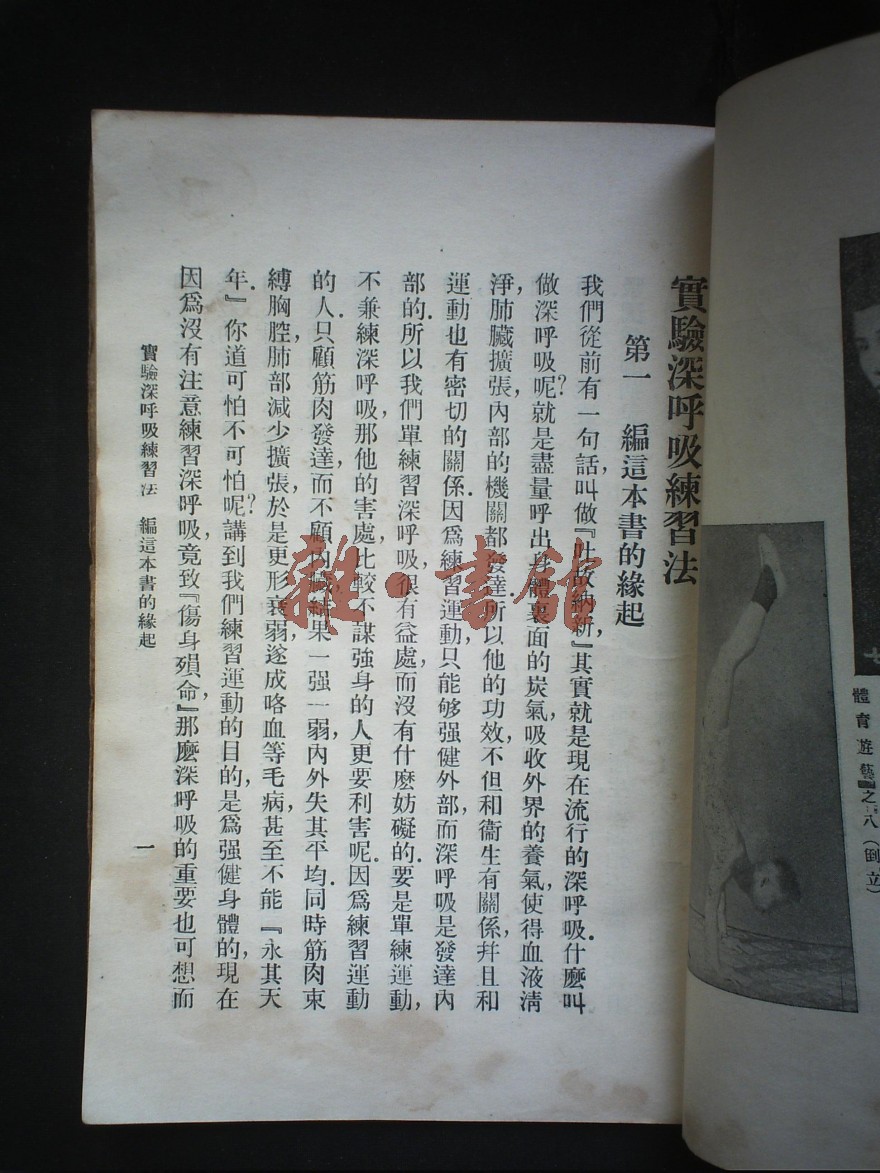 實驗深呼吸練習法
第一 編這本書的緣起
我們從前有一句話，叫做『吐故納新，』其實就是現在流行的深呼吸．什麽叫
做深呼吸呢？就是盡量呼出身體裏面的炭氣，吸收外界的養氣，使得血液清
淨，肺臟擴張，內部的機關都發達．所以他的功效，不但和衞生有關係，幷且和
運動也有密切的關係．因爲練習運動，只能够强健外部，而深呼吸是發達內
部的．所以我們單練習深呼吸，很有益處而沒有什麽妨礙的．要是單練運動，
不兼練深呼吸，那他的害處，比較不謀強身的人更要利害呢．因爲練習運動
的人．只顧筋肉發達，而不顧內臟，結果一强一弱，內外失其平均．同時筋肉束
縛胸腔，肺部減少擴張，於是更形衰弱，遂成咯血等毛病，甚至不能『永其天
年．』你道可怕不可怕呢？講到我們練習運動的目的，是爲强健身體的，現在
因爲沒有注意練習深呼吸，竟致『傷身殞命，』那麽深呼吸的重要也可想而
實驗深呼吸練習法 編這本書的緣起
一
體育遊藝之八（倒立）
雜·書館